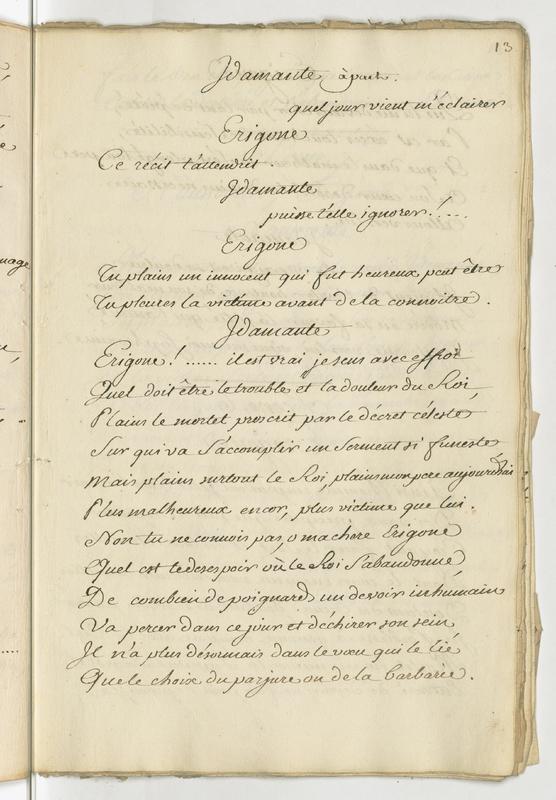 13
Idamante à part.
quel jour vient m'éclairer
Erigone
Ce récit t'attendrit.
Idamante
puisse t'elle ignorer!.....
Erigone
Tu plains un innocent qui fut heureux peut être
Tu pleures la victime avant de la connoitre.
Idamante
Erigone! ...... il est vrai je sens avec effroi
Quel doit être le trouble et la douleur du Roi,
Plains le mortel proscrit par le décret céleste
Sur qui va s'accomplir un Serment si funeste
Mais plains surtout le Roi, plains mon pere aujourdhui
Plus malheureux encor, plus victime que lui.
Non tu ne connois pas, o ma chere Erigone
Quel est le desespoir où le Roi s'abandonne
De combien de poignards un devoir inhumain
Va percer dans ce jour et déchirer son sein
Il n'a plus désormais dans le vœu qui le lie
Que le choix du parjure ou de la barbarie.
nage